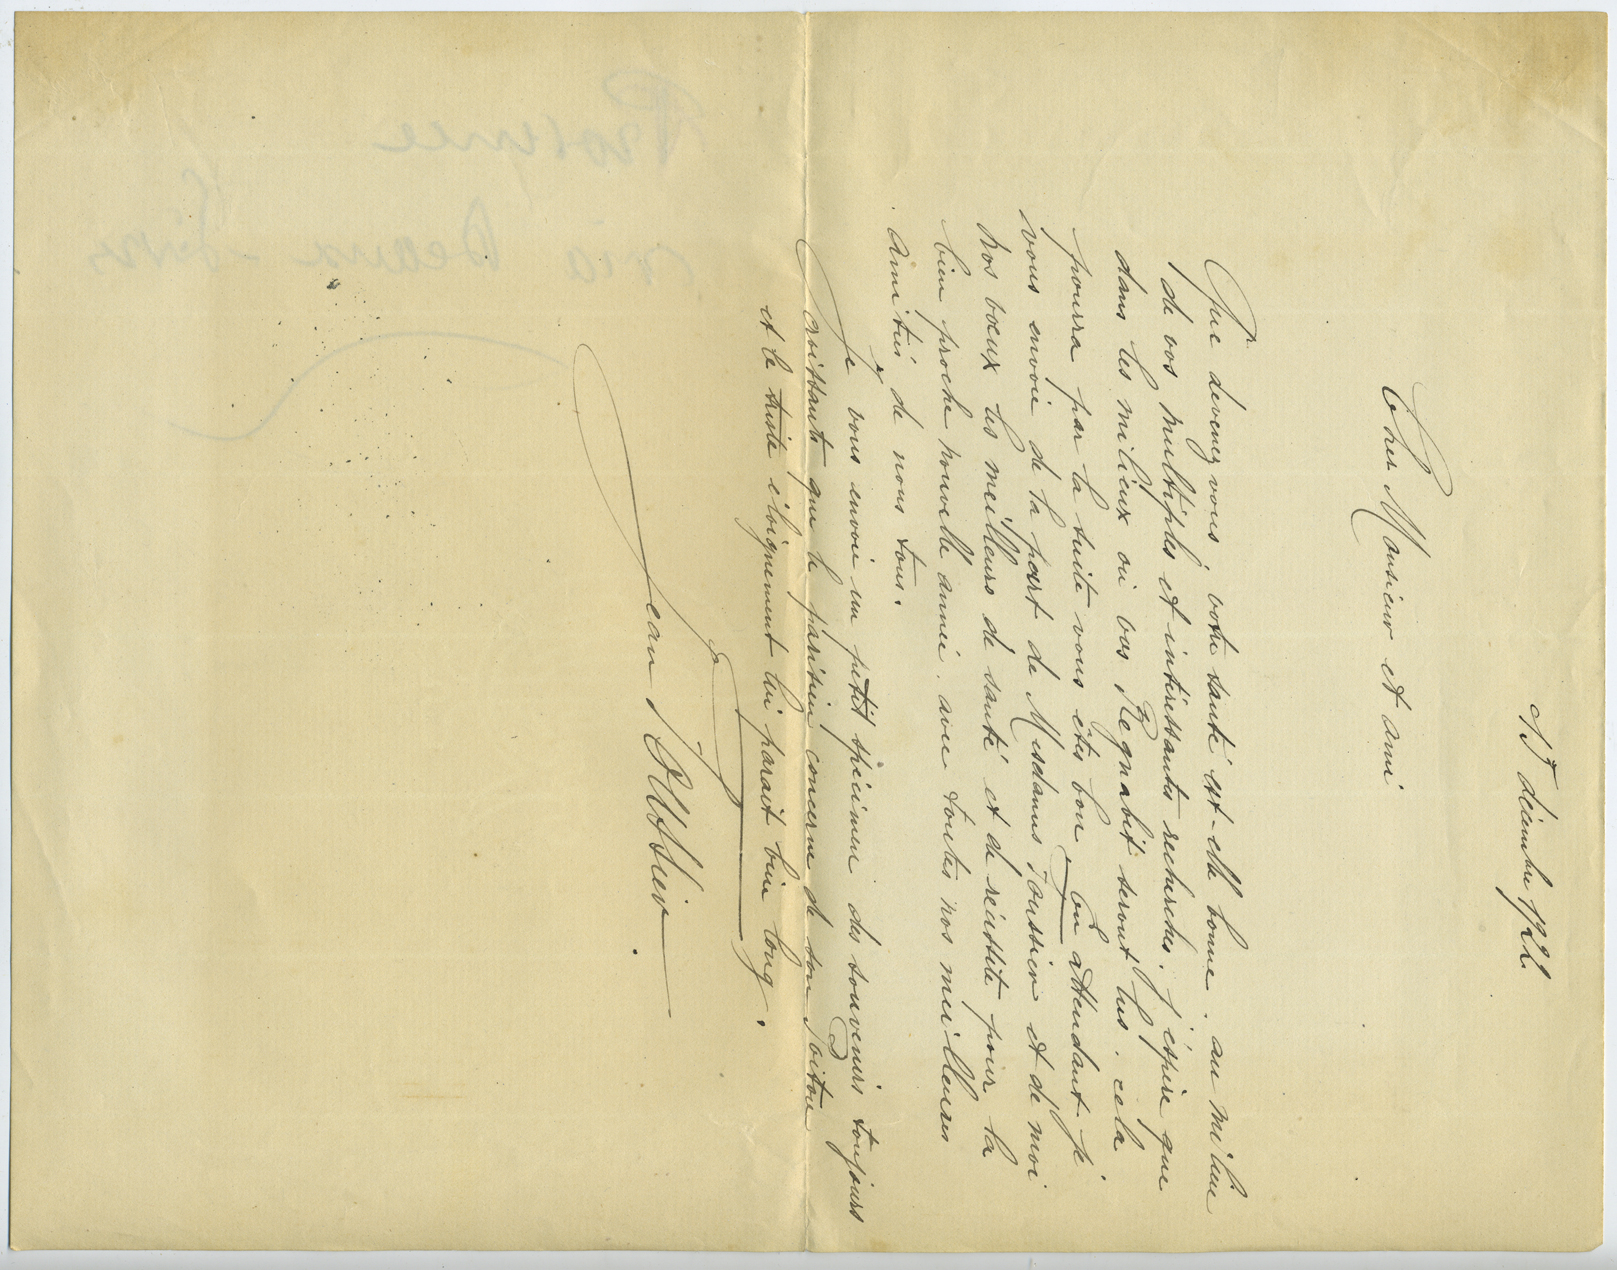 15 décembre 1922
Cher Monsieur et ami
Que devenez vous, votre santé est-elle bonne, au milieu
de vos multiples et intéressantes recherches. J'espère que
dans les milieux où vos Regnabit seront lus. cela
pourra par la suite vous être bon. En attendant je
vous envoie de la part de Mesdames Toussier et de moi
nos vœux les meilleurs de santé et de réussite pour la
bien proche nouvelle année. avec toutes nos meilleures
amitiés de nous tous.
Je vous envoie un petit spécimen des souvenirs toujours
croissants que le parisien conserve de son Poitou
et le triste éloignement lui parait bien long.
Jean
Provence
via Deaux-Sèvres